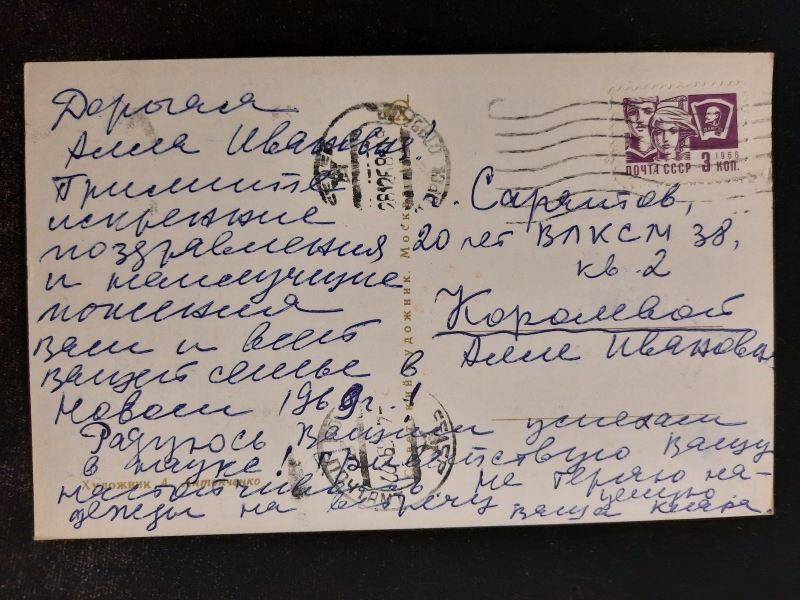 Дорогая
Алла Ивановна!
Примите
искренние
поздравления
и наилучшие
пожелания
Вам и всей
вашей семье в
Новом 1969 г.!
Радуюсь Вашим успехам
в науке! Приветствую Вашу
настойчивость. Не теряю на-
дежды на встречу целую
Ваша Клара.
ПОЧТА СССР 3 КОП.
1966
г. Саратов,
20 лет ВЛКСМ 38,
кв. 2
Королевой
Алле Ивановне
художник. Москва
Художник А.